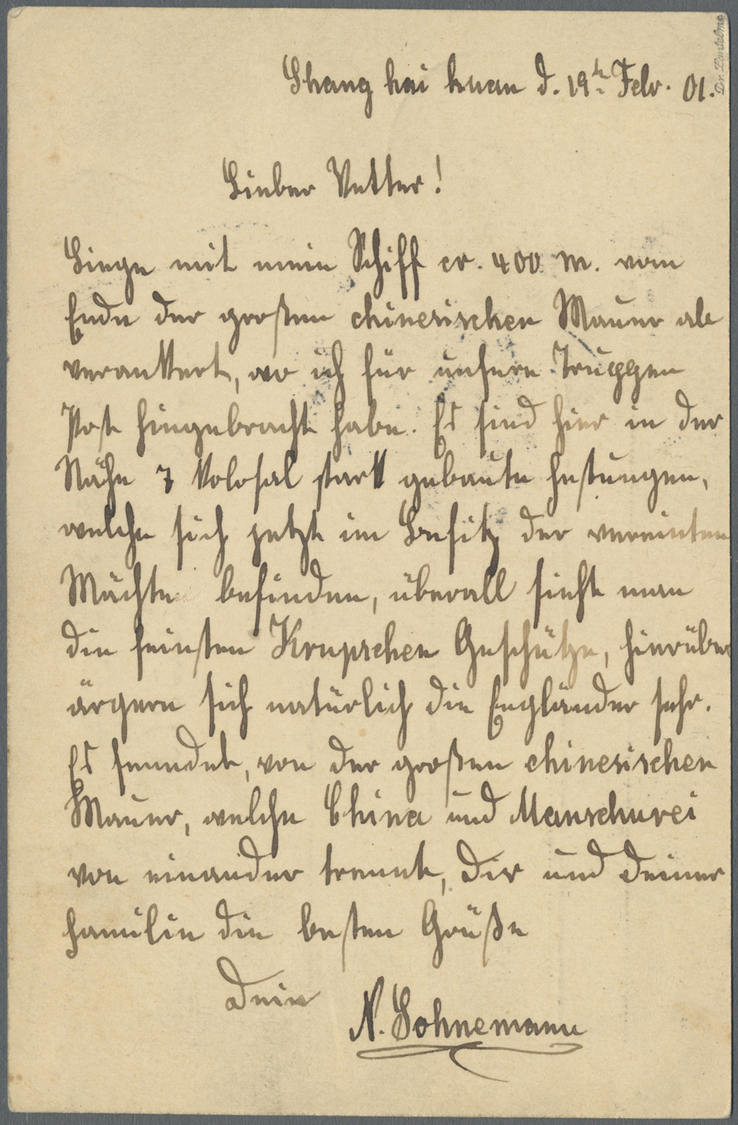 Shang hai kuan d. 19t. Febr. 01.
Lieber Vetter!
Liege mit mein Schiff cr. 400 m. vom
Ende der großen chinesischen Mauer ab
verankert, wo ich für unsere Truppen
Post hingebracht habe. Es sind hier in der
Nähe 7 kolosal stark gebaute Festungen,
welche sich jetzt im Besitz der vereinten
Mächte befinden, überall sieht man
die feinsten Krupschen Geschütze, hierüber
ärgern sich natürlich die Engländer sehr.
Es sendet, von der großen chinesischen
Mauer, welche China und Manschurei
von einander trennt, Dir und Deiner
Familie die besten Grüße
Dein
N. Sohnemann